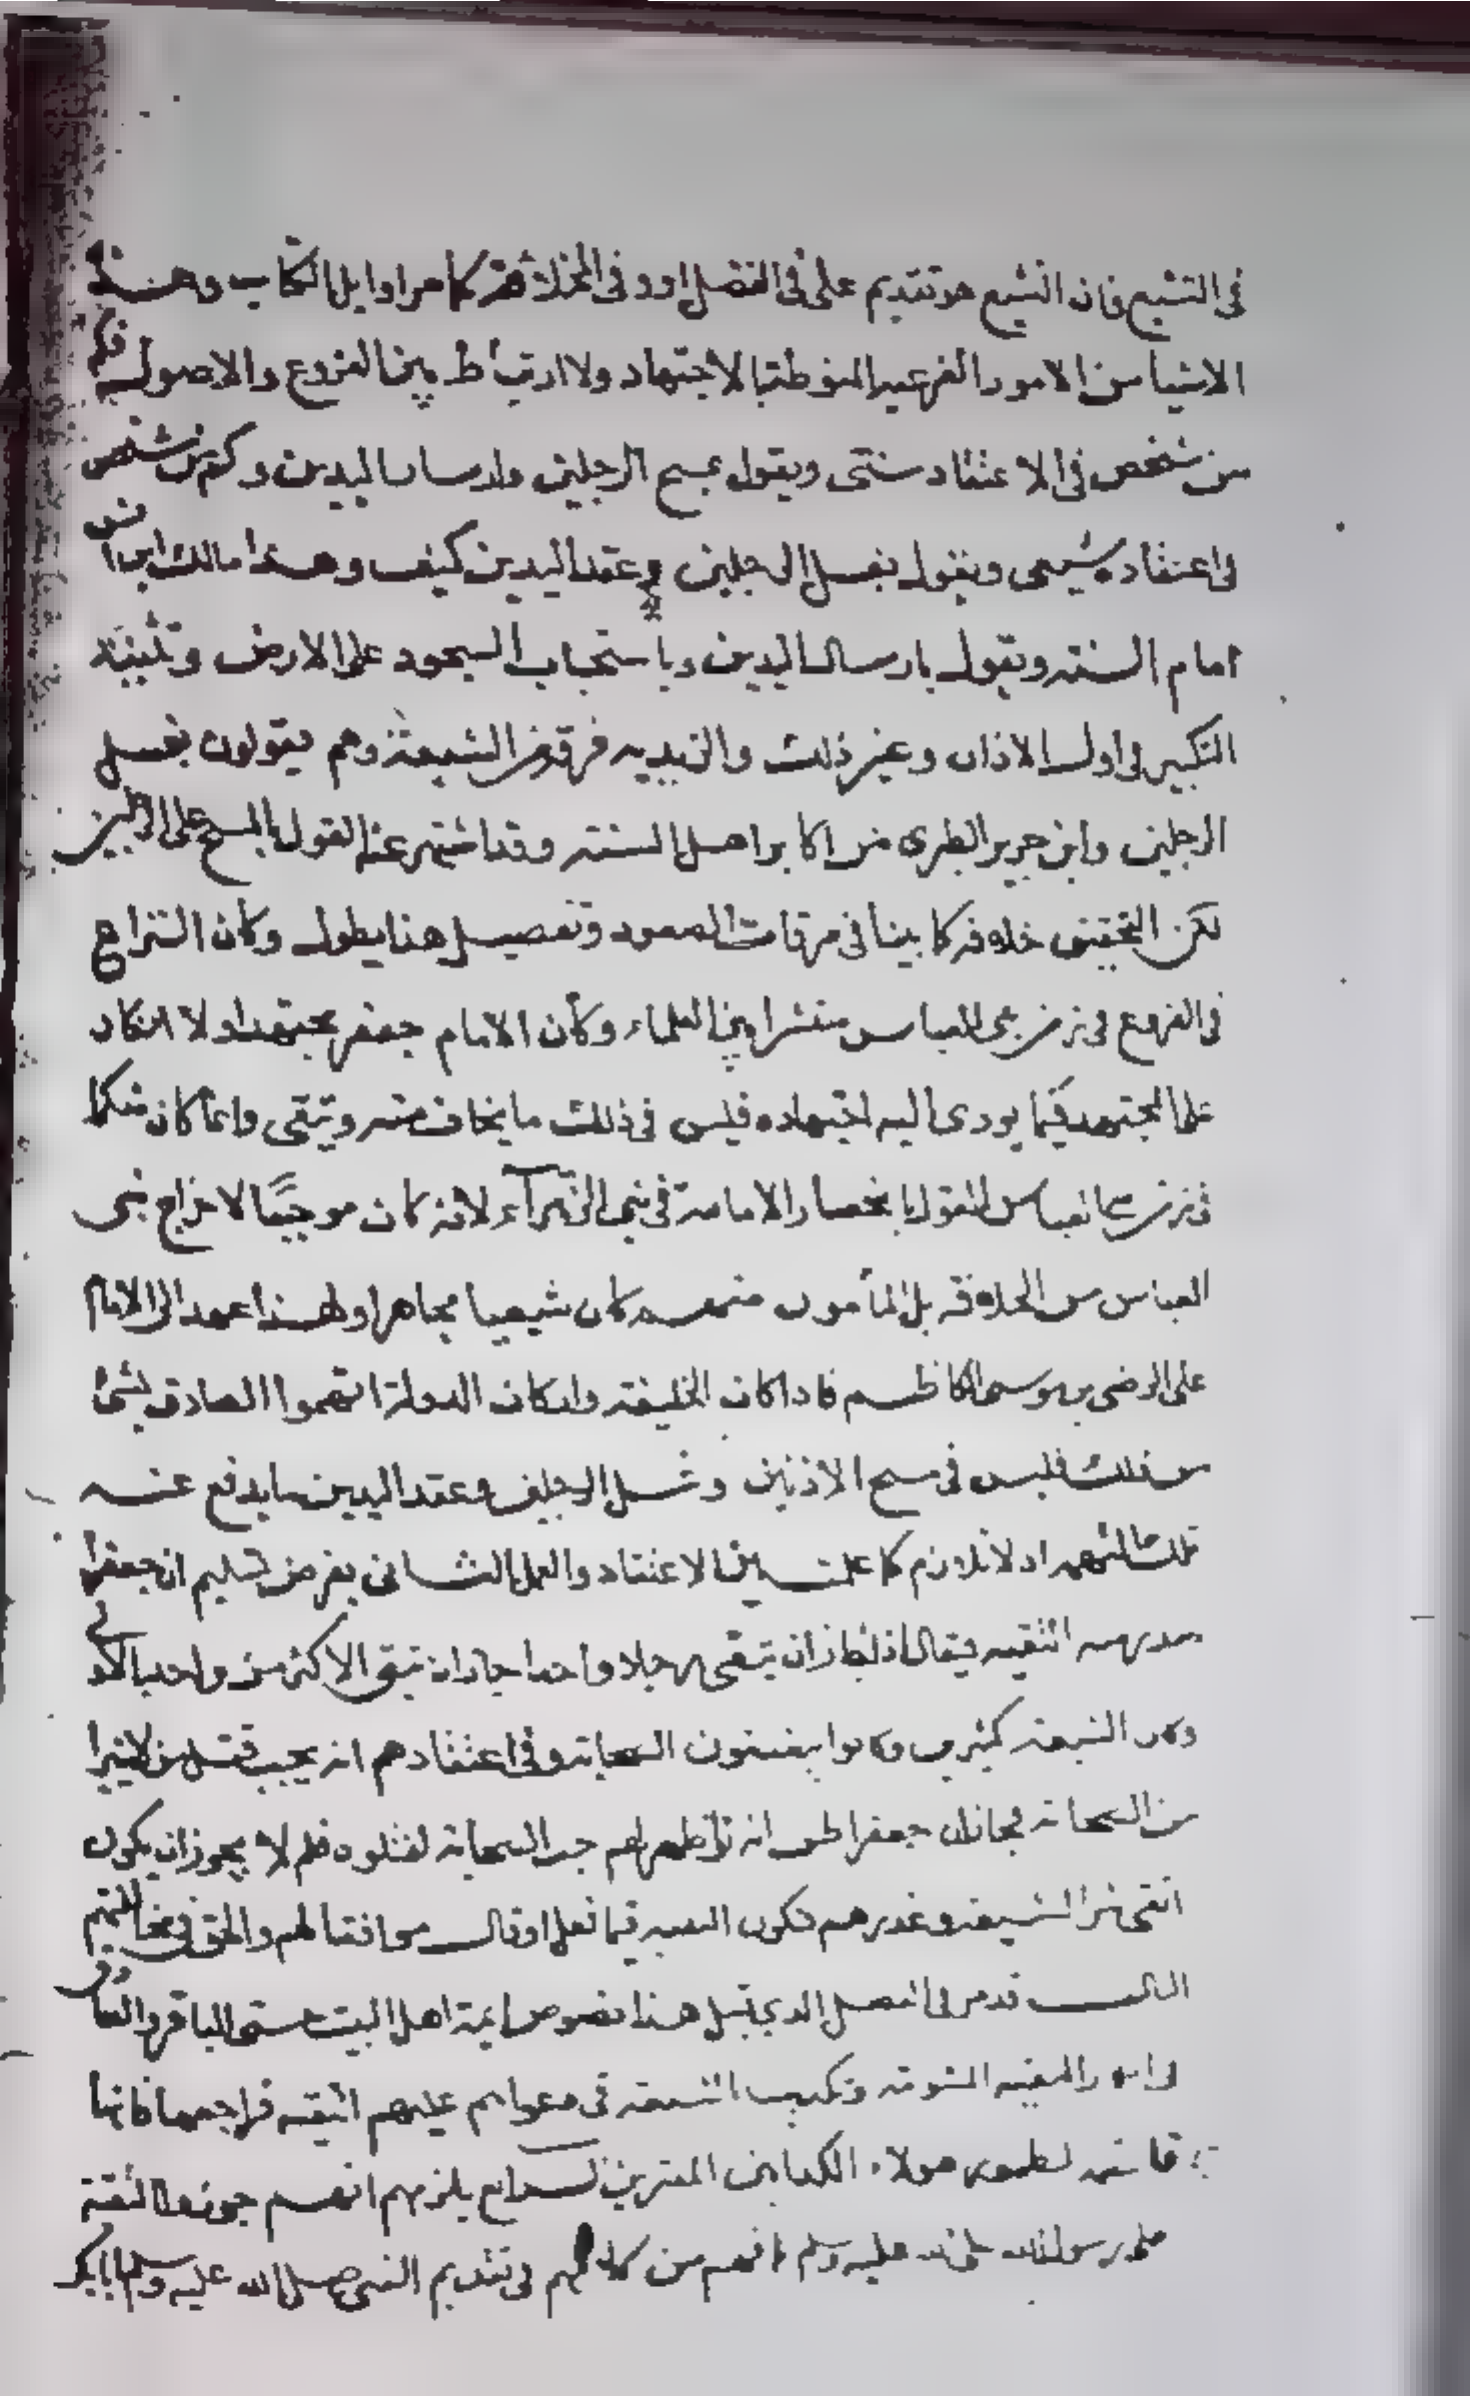 في التشيع فان التشيع هو تقديم علي في الفضل او في الخلافة كما مر اوايل الكتاب وهذه
الاشيا من الامور الفرعيه المنوطة بالاجتهاد ولا ارتباط بين الفروع والاصول فكم
من شخص في الاعتقاد سني ويقول بمسح الرجلين وارسال اليدين وكم من شخص
في اعتقاده شيعي ويقول بغسل الرجلين وعقد اليدين كيف وهذا مالك ابن انس
امام السنه ويقول بارسال اليدين وباستحباب السجود على الارض وتثنية
التكبير في اول الاذان وغير ذلك والزيديه فرقة من الشيعة وهم يقولون بغسل
الرجلين وابن جرير الطبري من اكابر اهل السنه وقد اشتهر عنه القول بالمسح على الرجلين
لكن التحقيق خلافه كما بينا في مرقات الصعود وتفصيل هذا يطول وكان النزاع
في الفروع في زمن بني العباس منتشرا بين العلماء وكان الامام جعفر مجتهدا ولا انكار
على المجتهد فيما يودي اليه اجتهاده فليس في ذلك ما يخاف منه ويتقى وانما كان منكرا
في زمن بني العباس القول بانحصار الامامة في بني الزهرآء لانه كان موجبًا لاخراج بني
العباس من الخلافه بل المأمون منهم كان شيعيا مجاهرا ولهذا عهد الى الامام
على الرضى بن موسى الكاظم فاذا كان الخليفه واركان الدولة اتهموا الصادق بشئ
من ذلك فليس في مسح الاذنين وغسل الرجلين وعقد اليدين ما يدفع عنه
تلك التهمه اذ لا تلازم كما علمت بين الاعتقاد والعمل الثاني بفرض تسليم ان جعفرا
مذهبه التقيه فيقال اذا جاز ان يتقى رجلا واحدا جاز ان يتقى الاكثر من واحد بالاولى
وكان الشيعه كثيرين وكانوا يبغضون الصحابة وفي اعتقادهم انه يجب قتل من لا يتبرا
من الصحابه فجاز ان جعفرا ظن انه لو اظهر لهم حب الصحابه لقتلوه فلم لا يجوز ان يكون
اتقى من الشيعه وغدرهم فيكون التقيه فيما فعل او قال موافقا لهم والحق في مخالفتهم
الثالث قد مر في الفصل الذي قبل هذا نصوص ايمة اهل البيت حتى الباقر والصادق
في المشومه وتكذيب الشيعه في دعواهم عليهم التقيه فراجعها فانها
قاصمه لظهور هولاء الكذابين المفترين الرابع يلزمهم انهم جوزوا التقية
على رسول الله صلى الله عليه وسلم لما فهم من كلامهم في تقديم النبي صلى الله عليه وسلم ابابكر